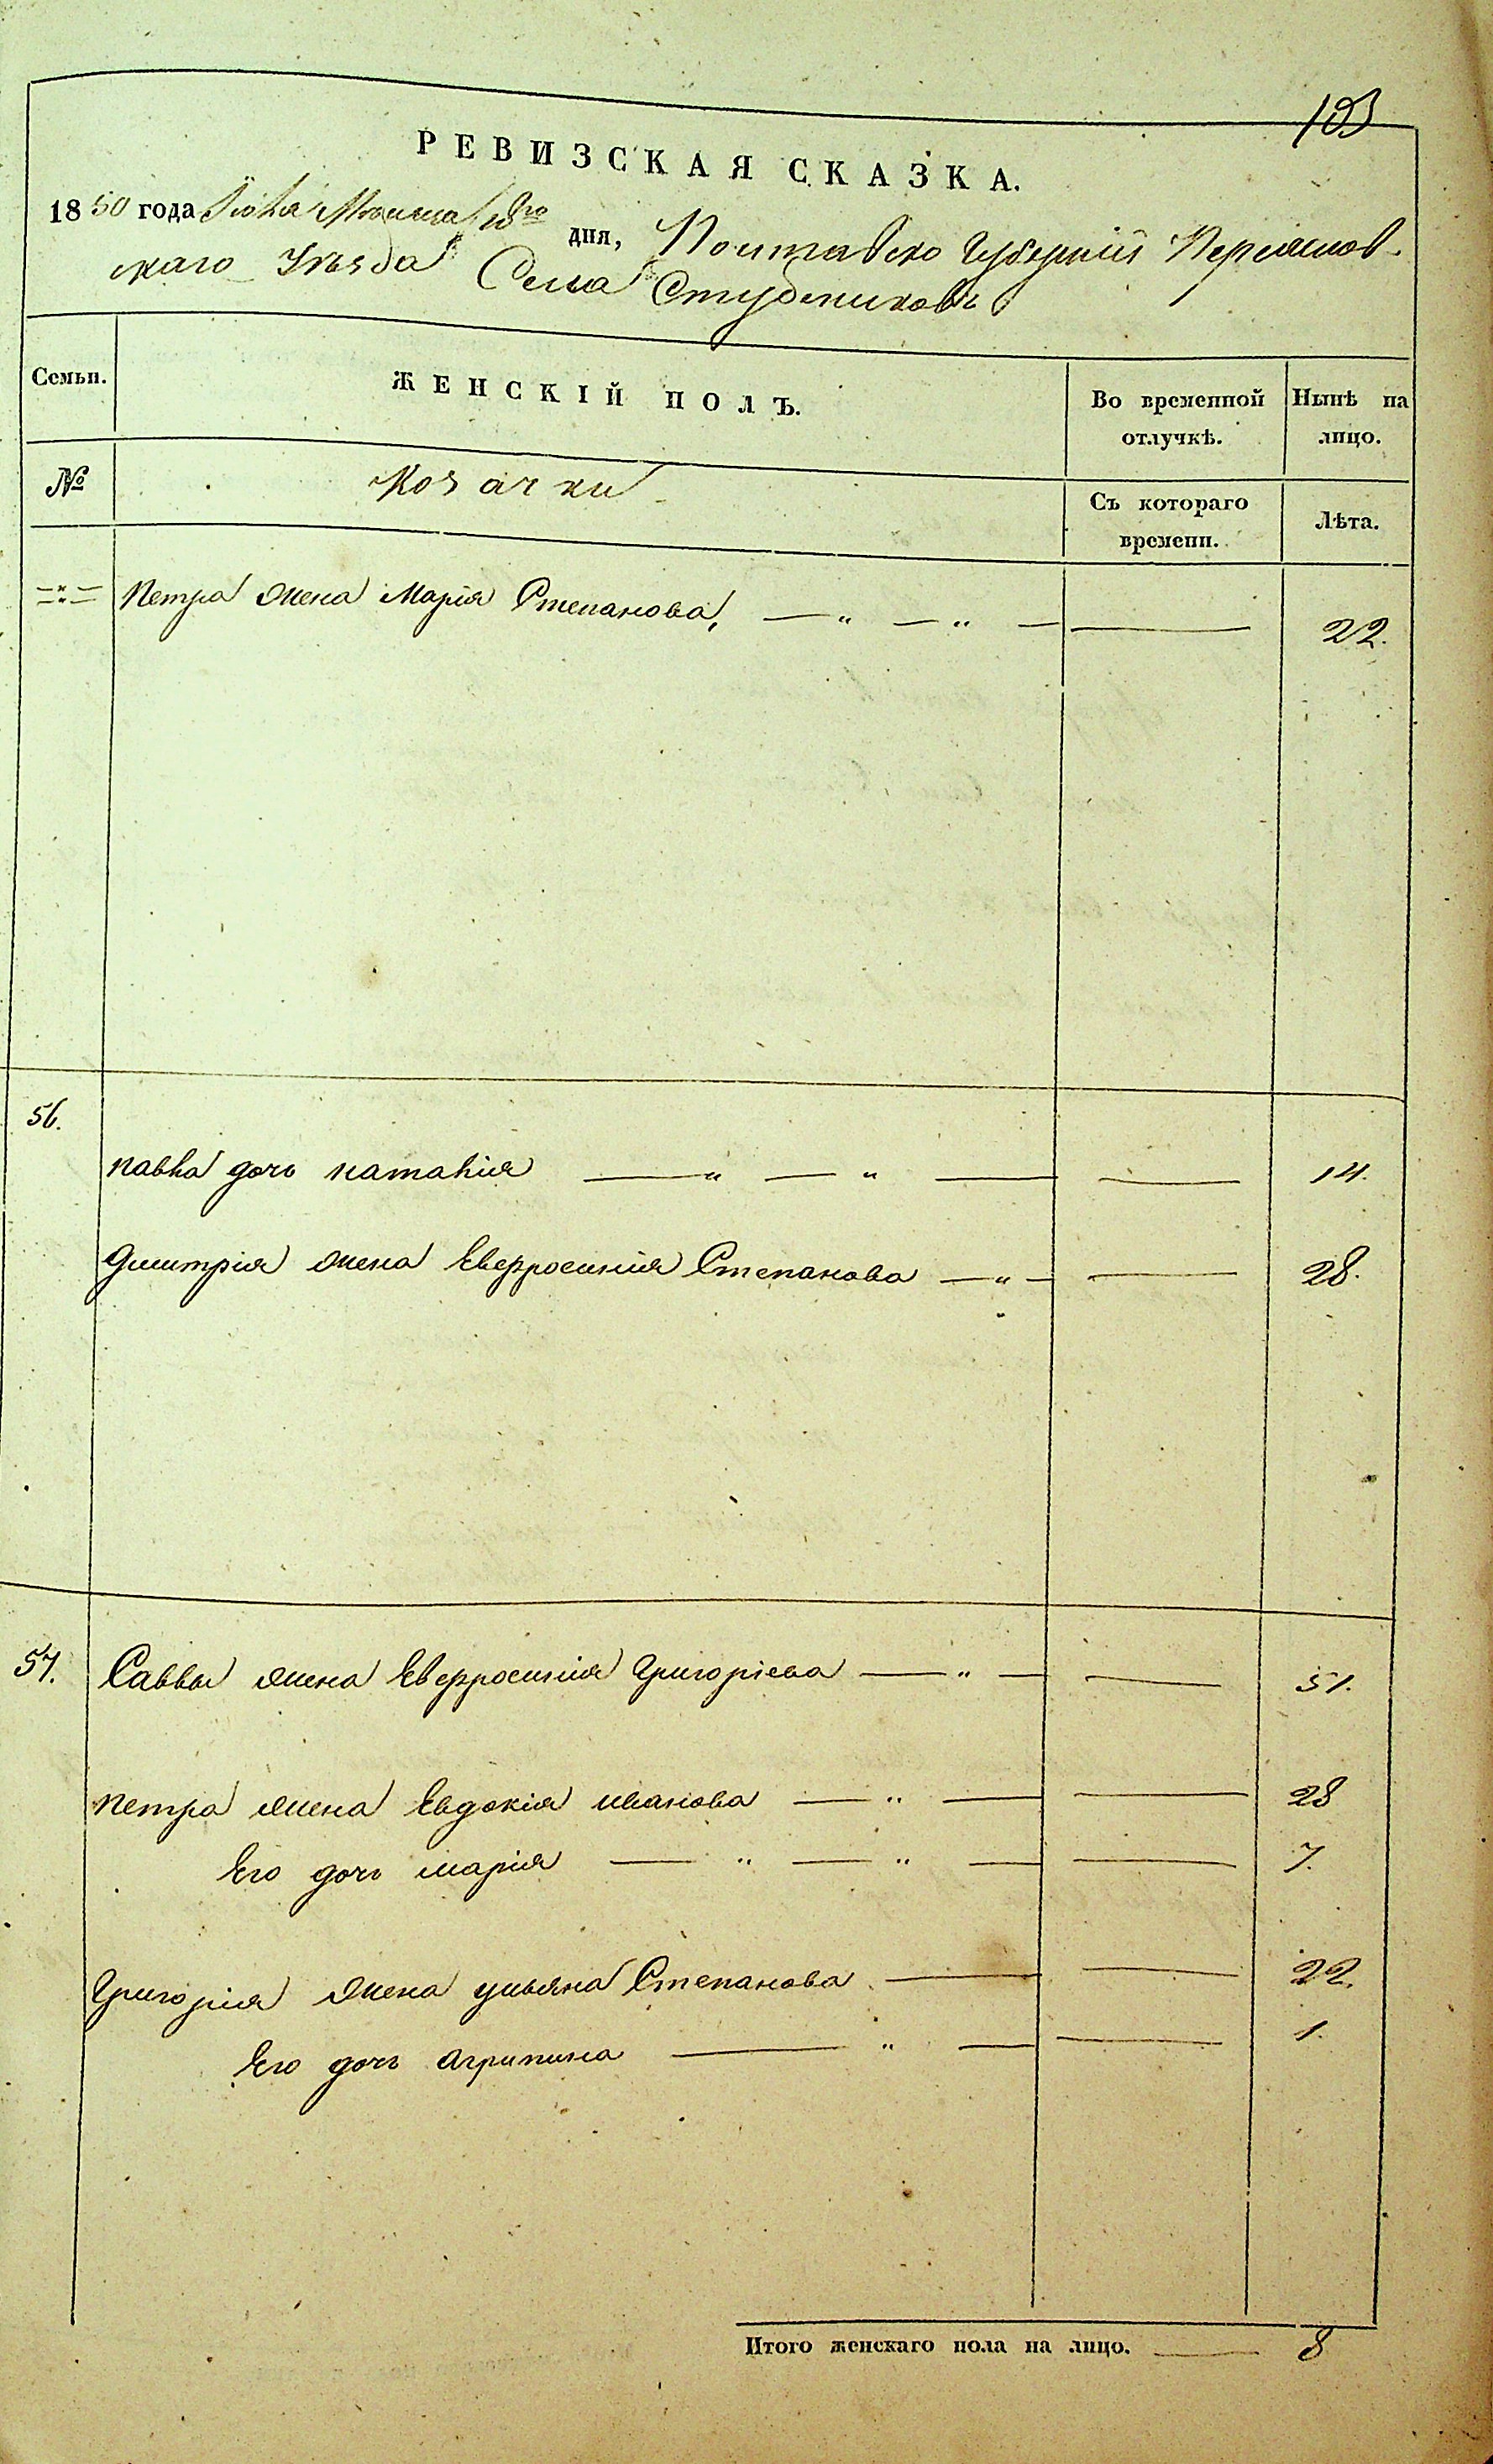 103
РЕВИЗСКАЯ СКАЗКА.
1850 года Іюля Месяца 18го дня, Полтавско Губерніи Переяслов-
скаго Уѣзда Села Студениковъ
Семьи. ЖЕНСКІЙ ПОЛЪ. Во временной отлучкѣ. Нынѣ на лицо.
№ Козачки Съ котораго времени. Лѣта.
Петра жена Марія Степанова, — „ — „ — — 22.
56.
Павла дочь Наталія — „ — „ — — 14.
Димитрія жена Евфросинія Степанова — „ — — 28.
57. Саввы жена Евфросинія Григоріева — „ — — 51.
Петра жена Евдокія Иванова — „ — — 28
Его дочь Марія — „ — „ — — 7.
Григорія жена Ульяна Степанова — — 22.
Его дочь Агрипина — „ — — 1.
Итого женскаго пола на лицо. — 8